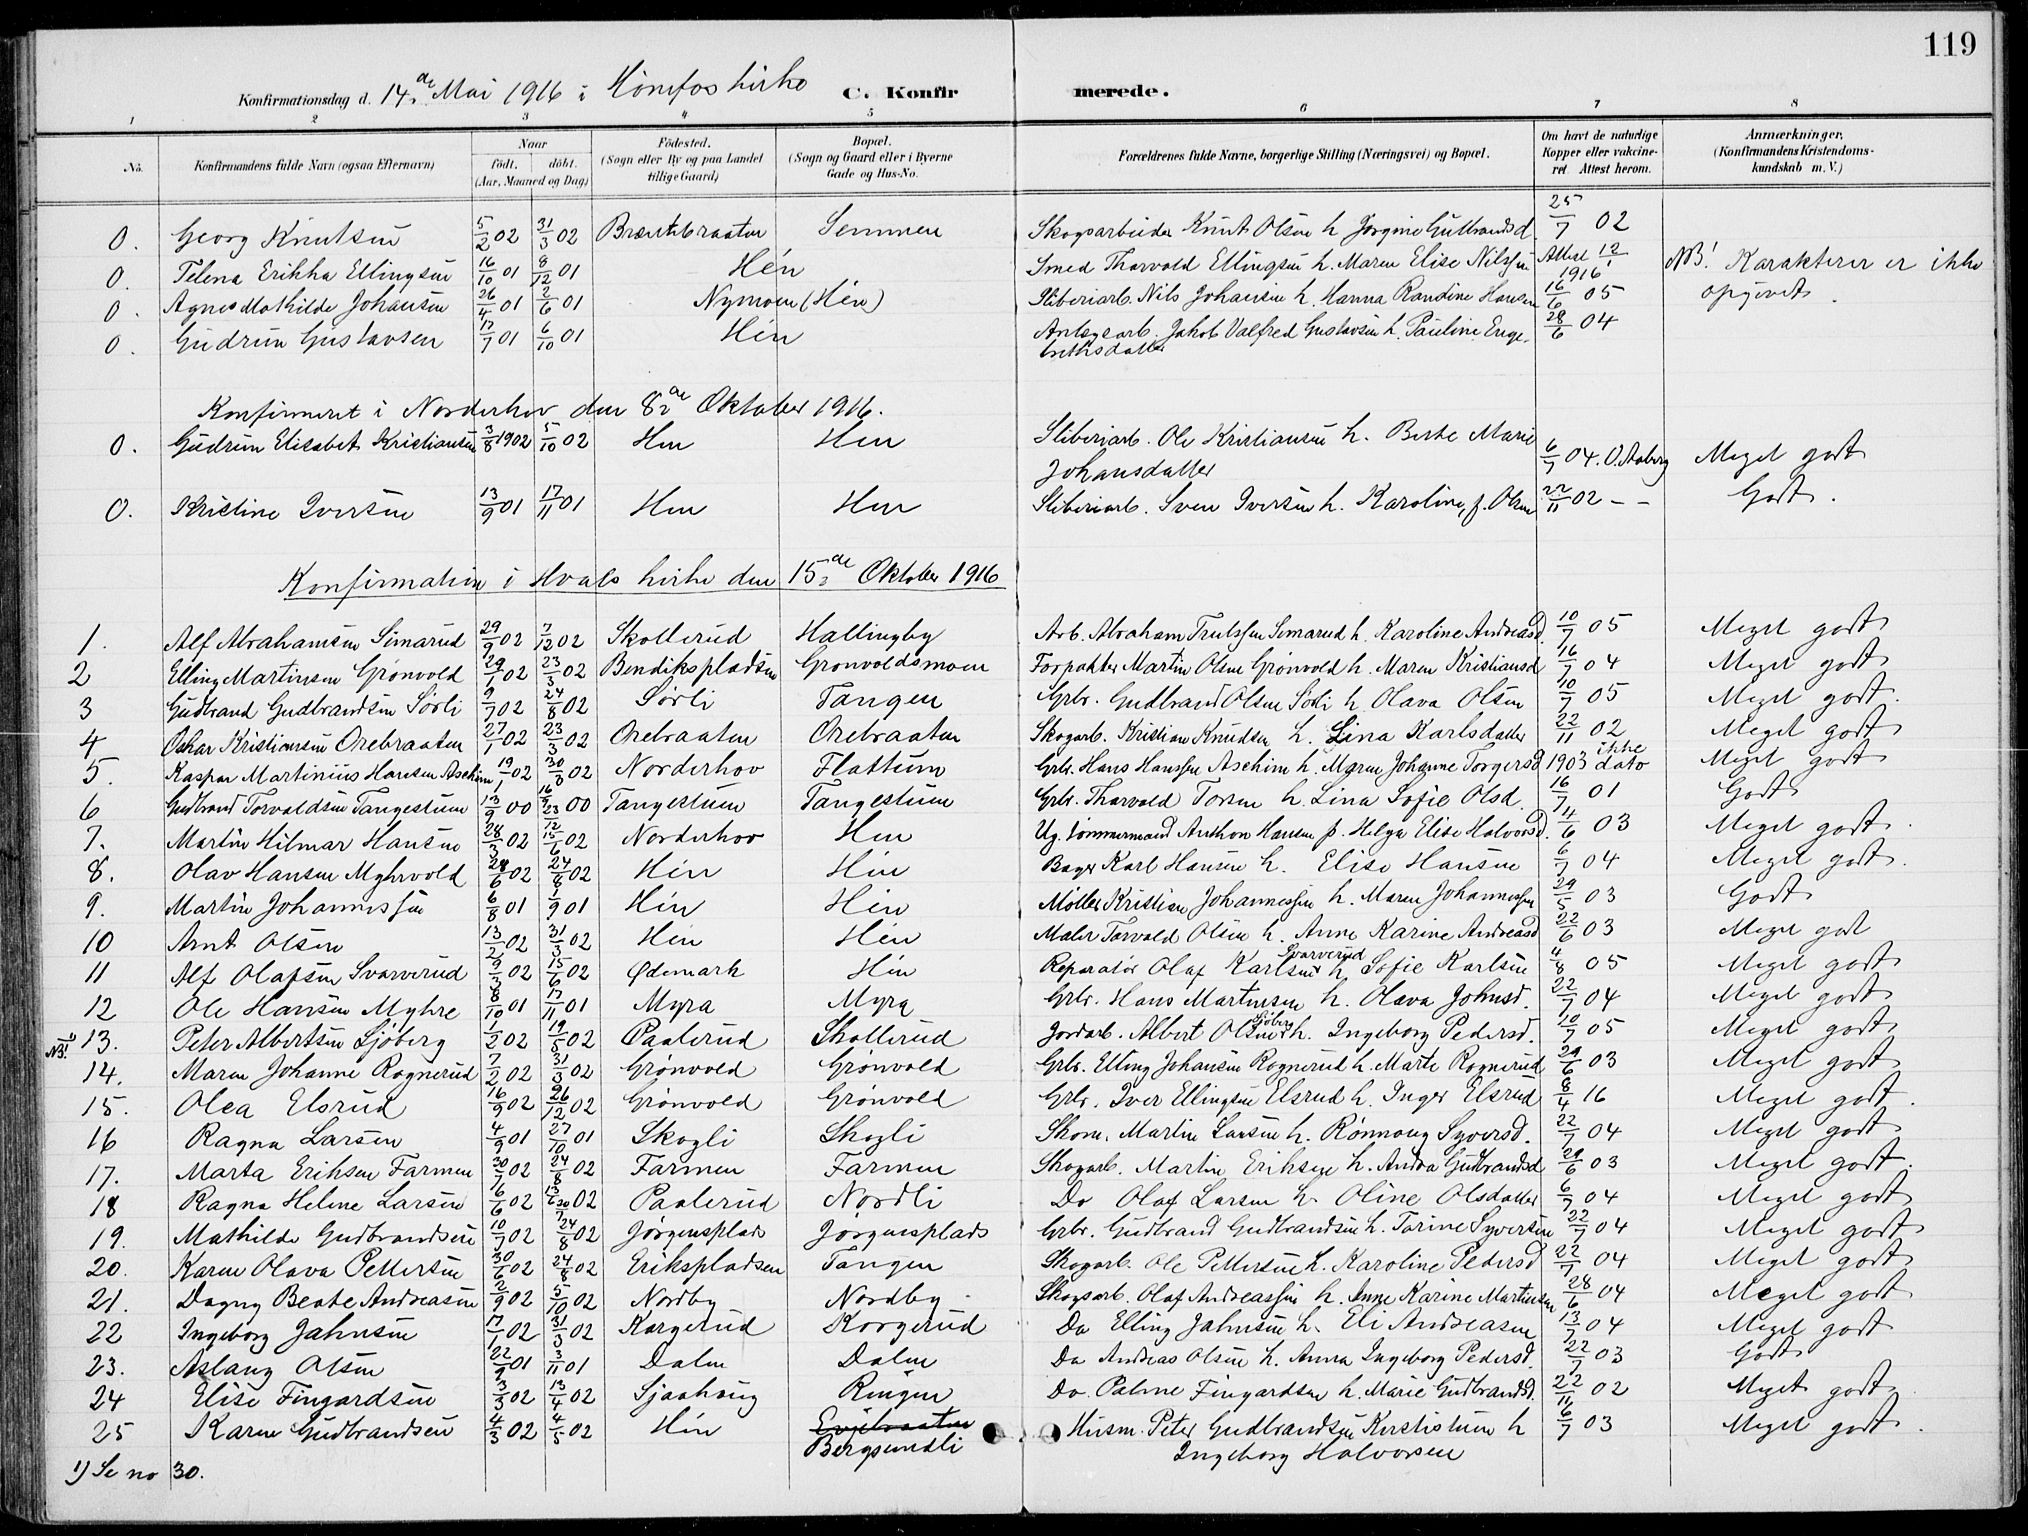 119
Konfirmationsdag d. 14de Mai 1916 i Hønefos kirke C. Konfirmerede.
1 2 3 4 5 6 7 8
No. Konfirmandens fulde Navn (ogsaa Efternavn) Naar født. døbt. (Aar, Maaned og Dag) Fødested. (Sogn eller By og paa Landet tillige Gaard) Bopæl. (Sogn og Gaard eller i Byerne Gade og Hus-No. Forældrenes fulde Navne, borgerlige Stilling (Næringsvei) og Bopæl. Om havt de naturlige Kopper eller vakcineret. Attest herom. Anmærkninger, (Konfirmandens Kristendomskundskab m. V.)
0. Georg Knutsen 5/2 02 31/3 02 Brænnbraaten Semmen Skogsarbeider Knut Olsen h Jørgine Gutbrandsd. 25/7 02
0. Telena Erikka Ellingsen 16/10 01 8/12 01 Hén Smed Thorvald Ellingsen h. Maren Elise Nilssen Attest 12/1 1916 NB! Karakterer er ikke
0. Agnes Mathilde Johansen 26/4 01 2/6 01 Nymoen (Hén) Sliberiarb. Nils Johansen h. Hanna Randine Hansen 16/6 05 opgivet.
0. Gudrun Gustavsen 17/7 01 6/10 01 Hén Anlægsarb. Jakob Valfred Gustavsen h. Pauline Enge- 28/6 04
brethsdatter
Konfirmeret i Norderhov den 8de Oktober 1916.
0. Gudrun Elisabet Kristiansen 3/8 1902 5/10 02 Hen Hen Sliberiarb. Ole Kristiansen h. Berte Marie
Johansdatter 6/7 04. O. Aaberg Meget godt
0. Kristine Iversen 13/9 01 17/11 01 Hen Hen Sliberiarb. Sven Iversen h. Karoline, f. Olsen 22/11 02 - - Godt.
Konfirmation i Hvals kirke den 15de Oktober 1916
1. Alf Abrahamsen Simarud 29/9 02 7/12 02 Skollerud Hallingby Arb. Abraham Trulssen Semarud h. Karoline Andreasd. 10/7 05 Meget godt
2 Elling Martinsen Grønvold 29/1 02 23/3 02 Bendikspladsen Grønvoldsmoen Forpakter Martin Olsen Grønvold h. Maren Kristiansd 16/7 04 Meget godt
3 Gudbrand Gudbrandsen Sørli 9/7 02 24/8 02 Sørli Tangen Grbr. Gudbrand Olsen Sørli h. Olava Olsen 10/7 05 Meget godt.
4 Oskar Kristiansen Orebraaten 27/1 02 23/3 02 Orebraaten Orebraaten Skogarb. Kristian Knudsen h. Lina Karlsdatter 22/11 02 Meget godt
5. Kaspar Martinius Hansen Aschim 19/1 02 30/3 02 Norderhov Flattum Grbr. Hans Hanssen Aschim h. Maren Johanne Torgersd 1903 ikke dato Meget godt
6 Gudbrand Torvaldsen Tangestuen 13/9 00 16/9 23/12 00 Tangestuen Tangestuen Grbr. Thorvald Torsen h. Lina Sofie Olsd. 16/7 01 Godt
7. Martin Hilmar Hansen 28/3 02 15/6 02 Norderhov Hen Ug. tømmermand Anthon Hansen p. Helga Elise Halvorsd. 4/6 03 Meget godt.
8. Olav Hansen Myhrvold 28/6 02 24/8 02 Hén Hén Bager Karl Hansen h. Elise Hansen 6/7 04 Meget godt.
9. Martin Johannessen 6/8 01 1/9 01 Hén Hén Møller Kristian Johannessen h. Maren Johannessen 29/5 03 Godt
10 Arnt Olsen 13/2 02 31/3 02 Hén Hén Maler Torvald Olsen h. Anne Karine Andreasd 22/6 03 Meget godt
11 Alf Olafsen Svarverud 9/3 02 15/6 02 Ødemark Hén Reparatør Olaf Karlsen Svarverud h Sofie Karlsen 4/8 05 Meget godt
12 Ole Hansen Myhre 8/10 01 17/11 01 Myra Myra Grbr. Hans Martinsen h. Olava Johnsd. 22/7 04 Meget godt
NB! 1) 13. Peter Albertsen Sjøberg 1/2 02 19/5 02 Paalerud Skollerud Jordarb. Albert Olsen Sjøberg h. Ingeborg Pedersd. 10/7 05 Meget godt
14. Maren Johanne Rognerud 7/2 02 31/3 02 Grønvold Grønvold Grbr. Elling Johansen Rognerud h. Marte Rognerud 29/6 03 Meget godt
15. Olea Elsrud 16/9 02 26/12 02 Grønvold Grønvold Grbr. Iver Ellingsen Elsrud h. Inger Elsrud 8/4 16 Meget godt.
16 Ragna Larsen 4/9 01 27/10 01 Skogli Skogli Skom. Martin Larsen h. Rønnaug Syversd. 22/7 04 Meget godt
17. Marta Eriksen Farmen 30/7 02 24/8 02 Farmen Farmen Skogarb. Martin Eriksen h. Andrea Gudbrandsd 29/6 03 Meget godt.
18 Ragna Helene Larsen 16/6 02 13/6 20/7 02 Paalerud Nordli Do Olaf Larsen h. Oline Olsdatter 6/7 04 Meget godt
19. Mathilde Gudbrandsen 10/7 02 24/8 02 Jørgensplads Jørgensplads Grbr. Gudbrand Gudbrandsen h. Torine Syversen 22/7 04 Meget godt
20. Karen Olava Pettersen 30/6 02 24/8 02 Erikspladsen Tangen Skogarb. Ole Pettersen h. Karoline Pedersd 22/7 04 Meget godt
21. Dagny Beate Andreasen 2/9 02 5/10 02 Nordby Nordby Skogsarb. Olaf Andreassen h. Anne Karine Martinsen 28/6 04 Meget godt
22 Ingeborg Jahnsen 17/1 02 31/3 02 Korgerud Korgerud Do Elling Jahnsen h. Eli Andreasen 13/7 04 Meget godt
23. Aslaug Olsen 22/9 01 3/11 01 Dalen Dalen Do Andreas Olsen h. Anna Ingeborg Pedersd. 22/7 03 Godt
24 Elise Fingardsen 3/3 02 13/4 02 Sjaahaug Ringen Do. Palme Fingardsen h. Marie Gudbrandsd. 22/11 02 Meget godt
25 Karen Gudbrandsen 4/3 02 4/5 02 Hén Husm. Peter Gudbrandsen Kerstistuen h 6/7 03 Meget godt.
Bergsundli Ingeborg Halvorsen
1) Se no 30.